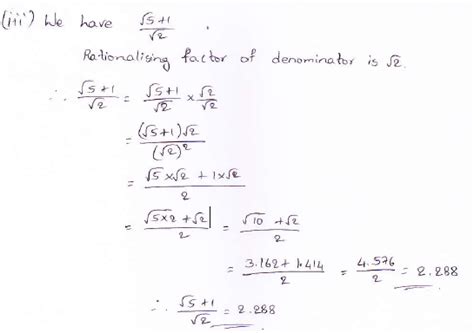 (iii) We have √5+1/√2 .
Rationalising factor of denominator is √2.
∴ √5+1/√2 = √5+1/√2 × √2/√2
= (√5+1)√2/(√2)²
= √5×√2 + 1×√2/2
= √5×2 + √2/2 = √10 + √2/2
= 3.162 + 1.414/2 = 4.576/2 = 2.288
∴ √5+1/√2 = 2.288